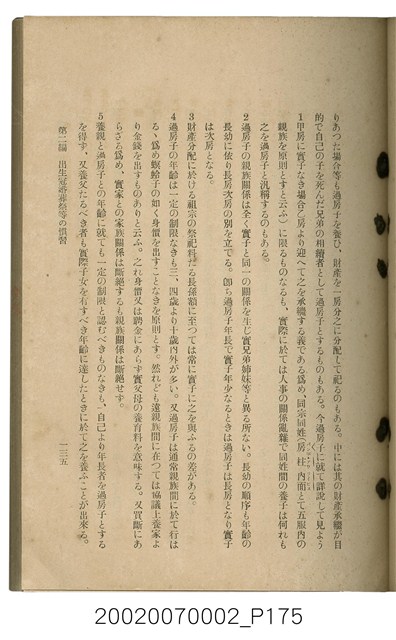 りあつた場合等も過房子を養ひ、財產を一房分之に分配して祀るのもある。中には其の財產承繼が目
的で自己の子を死んだ兄弟の相續者として過房子とするものもある。今過房子に就て詳說して見よう
1 甲房に實子なき場合乙房より迎へて之を承繼する義である爲め、同宗同姓(房柱)內面とて五服內の
親族を原則とすと云ふ)に限るものなるも、實際に於ては人事の關係亂雜で同姓間の養子は何れも
之を過房子と汎稱するのもある。
2 過房子の親族關係は全く實子と同一の關係を生じ實兄弟姊妹等と異る所ない。長幼の順序も年齡の
長幼に依り長房次房の別を立てる。卽ち過房子年長で實子年少なるときは過房子は長房となり實子
は次房となる。
3 財產分配に於ける祖宗の祭祀料たる長孫額に至つては常に實子に之を與ふるの差がある。
4 過房子の年齡は一定の制限なきも三、四歲より十歲內外が多い。又過房子は通常親族間に於て行は
るゝ爲め螟蛉子の如く身價を出すことなきを原則とす。然れども遠親族間に在つては協議上養家よ
り金錢を出すものありと云ふ。之れ身價又は聘金にあらず實父母の養育料を意味する。又買斷にあ
らざる爲め、實家との家族關係は斷絕するも親族關係は斷絕せず。
5 養親と過房子との年齡に就ても一定の制限と認むべきものなきも、自己より年長者を過房子とする
を得ず、又養父たるべき者も實際子女を有すべき年齡に達したときに於て之を養ふことが出來る。
第二編 出生冠婚葬祭等の慣習
一三五
20020070002_P175